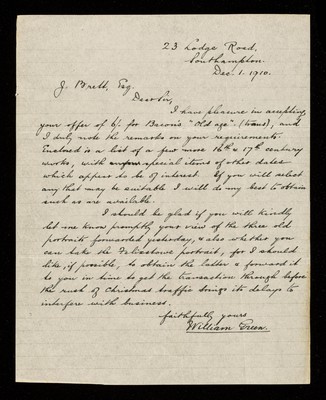 23 Lodge Road,
Southampton.
Dec. 1. 1910.
J. Brett, Esq.
Dear Sir,
I have pleasure in accepting
your offer of 6/- for Bacon's "Old age" (trans), and
I duly note the remarks on your requirements.
Enclosed is a list of a few more 16th & 17th century
works, with special items of other dates
which appear to be of interest. If you will select
any that may be suitable I will do my best to obtain
such as are available.
I should be glad if you will kindly
let me know promptly your view of the three old
portraits forwarded yesterday, & also whether you
can take the portrait, for I should
like, if possible, to obtain the latter & forward it
to you in time to get the transaction through before
the rush of Christmas traffic brings its delays to
interfere with business.
faithfully yours
William Green.